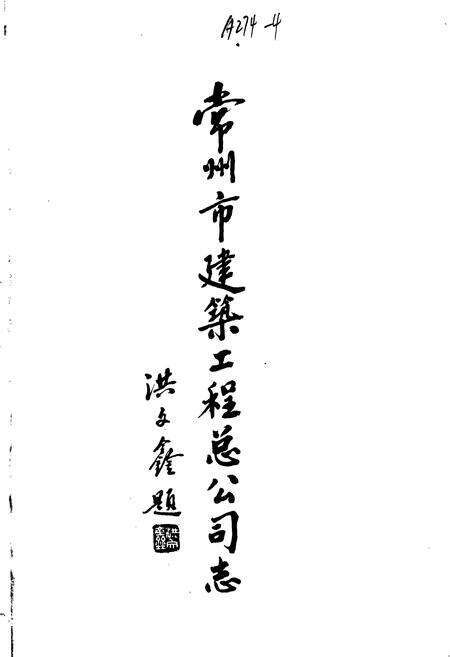 A274-4
常州市建築工程总公司志
洪文鑫題